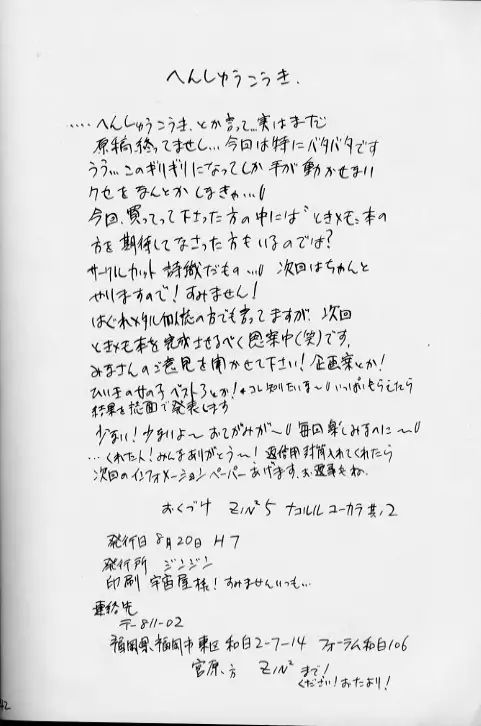 へんしゅうこうき.
‥‥へんしゅうこうき.とか言って…実はまだ
原稿終ってませし…今回は特にバタバタです
ううっ…このギリギリになってしか手が動かせまい
クセをなんとかしなきゃ…
今回、買ってって下さった方の中には"ときメモ"本の
方を期待してなさった方もいるのでは?
サークルカット 詩織だもの… 次回はちゃんと
やりますので! すみません!
はぐれメタル の方でも言ってますが、次回
ときメモ本を完成させるべく思案中(笑)です.
みなさんのご意見を聞かせて下さい! 企画案とか!
ひいきの女の子ベスト3とか! コレ知りたいま〜 いっぱいもらえたら
結果を誌面で発表します
少ない! 少ないよ〜おてがみが〜 毎回楽しみなのに〜
…くれた人!みんなありがとう〜! 返信用封筒入れてくれたら
次回のインフォメーションペーパーあげます.お返事もね.
おくづけ ZIN²5 ナコルル ユーカラ其ノ2
発行日 8月20日 H7
発行所 ジンジン
印刷 宇宙屋様! すみませんいつも…
連絡先
〒-811-02
福岡県、福岡市東区 和白2-7-14 フォーラム和白106
宮原.方 ZIN² まで!
ください!おたより!
42